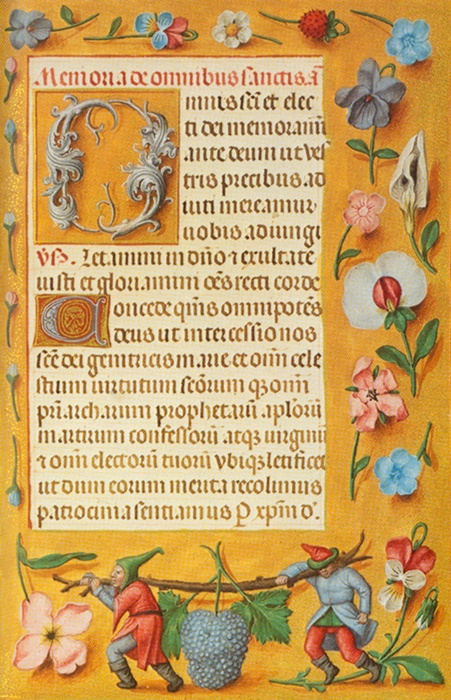 Memoria de omnibus sanctis. añ
Omnes sc̄i et elec
ti dei memoramī
ante deum ut ves
tris precibus ad
iuti mereamur
uobis adiungi
Vs̄. Letamini in dn̄o ⁊ exultate
iusti et gloriamini oēs recti corde
Concede q̄ms omnipotēs
deus ut intercessio nos
scē dei genitricis marie et oīm cele
stium uirtutum sc̄orum qȝ omī
pr̄iarcharum prophetarū aplōrū
martirum confessorū atqȝ uirginū
⁊ omī electorū tuorū ubiqȝ letificet
ut dum eorum merita recolimus
patrocinia sentiamus P xp̄m d̄.